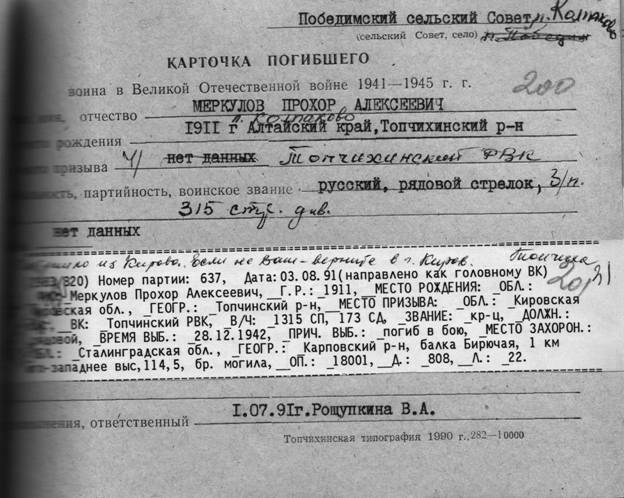 Победимский сельский Совет, п. Колпаково
(сельский Совет, село)
КАРТОЧКА ПОГИБШЕГО
воина в Великой Отечественной войне 1941—1945 г. г.
200
МЕРКУЛОВ ПРОХОР АЛЕКСЕЕВИЧ
отчество п. Колпаково
рождения 1911 г Алтайский край, Топчихинский р-н
призыва нет данных Топчихинский РВК
партийность, воинское звание русский, рядовой стрелок, з/п.
315 стр. див.
нет данных
из Кирова. Если не Ваш - верните в г. Киров. Топчиха
/820) Номер партии: 637, Дата: 03.08.91 (направлено как головному ВК)
Меркулов Прохор Алексеевич, _Г.Р.: 1911, _МЕСТО РОЖДЕНИЯ: _ОБЛ.:
ская обл., _ГЕОГР.: Топчинский р-н, _МЕСТО ПРИЗЫВА: _ОБЛ.: Кировская
_ВК: Топчинский РВК, _В/Ч: _1315 СП, 173 СД, _ЗВАНИЕ: _кр-ц, _ДОЛЖН.:
_ВРЕМЯ ВЫБ.: _28.12.1942, _ПРИЧ. ВЫБ.: _погиб в бою, _МЕСТО ЗАХОРОН.:
Сталинградская обл., _ГЕОГР.: Карповский р-н, балка Бирючая, 1 км
западнее выс,114,5, бр. могила, _ОП.: _18001, _Д.: _808, _Л.: _22.
1.07.91г. Рощупкина В.А.
ответственный
Топчихинская типография 1990 г., 282—10000